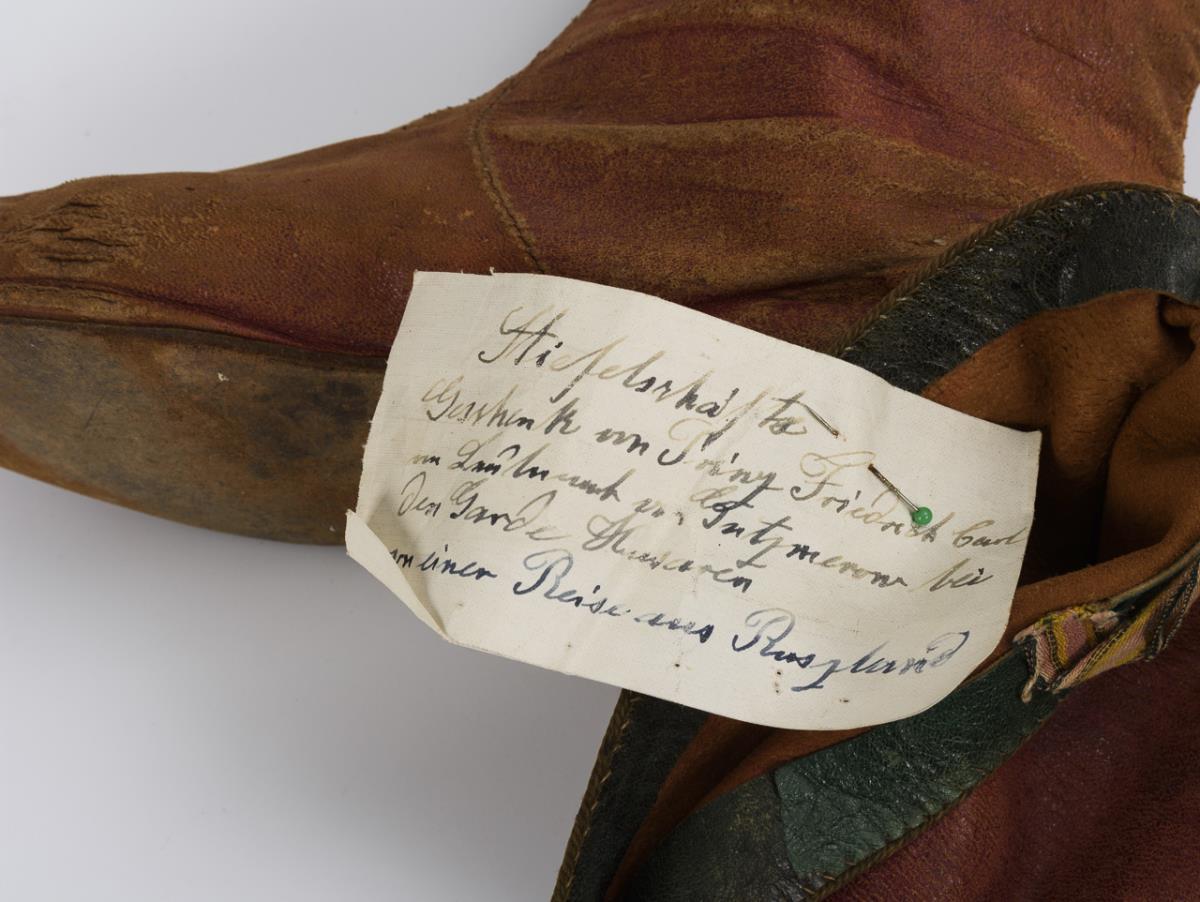 Stiefelschäfte
Geschenk von Prinz Friedrich Carl
an Leutnant von Gutzmerow bei
den Garde Husaren
von einer Reise aus Ruszland